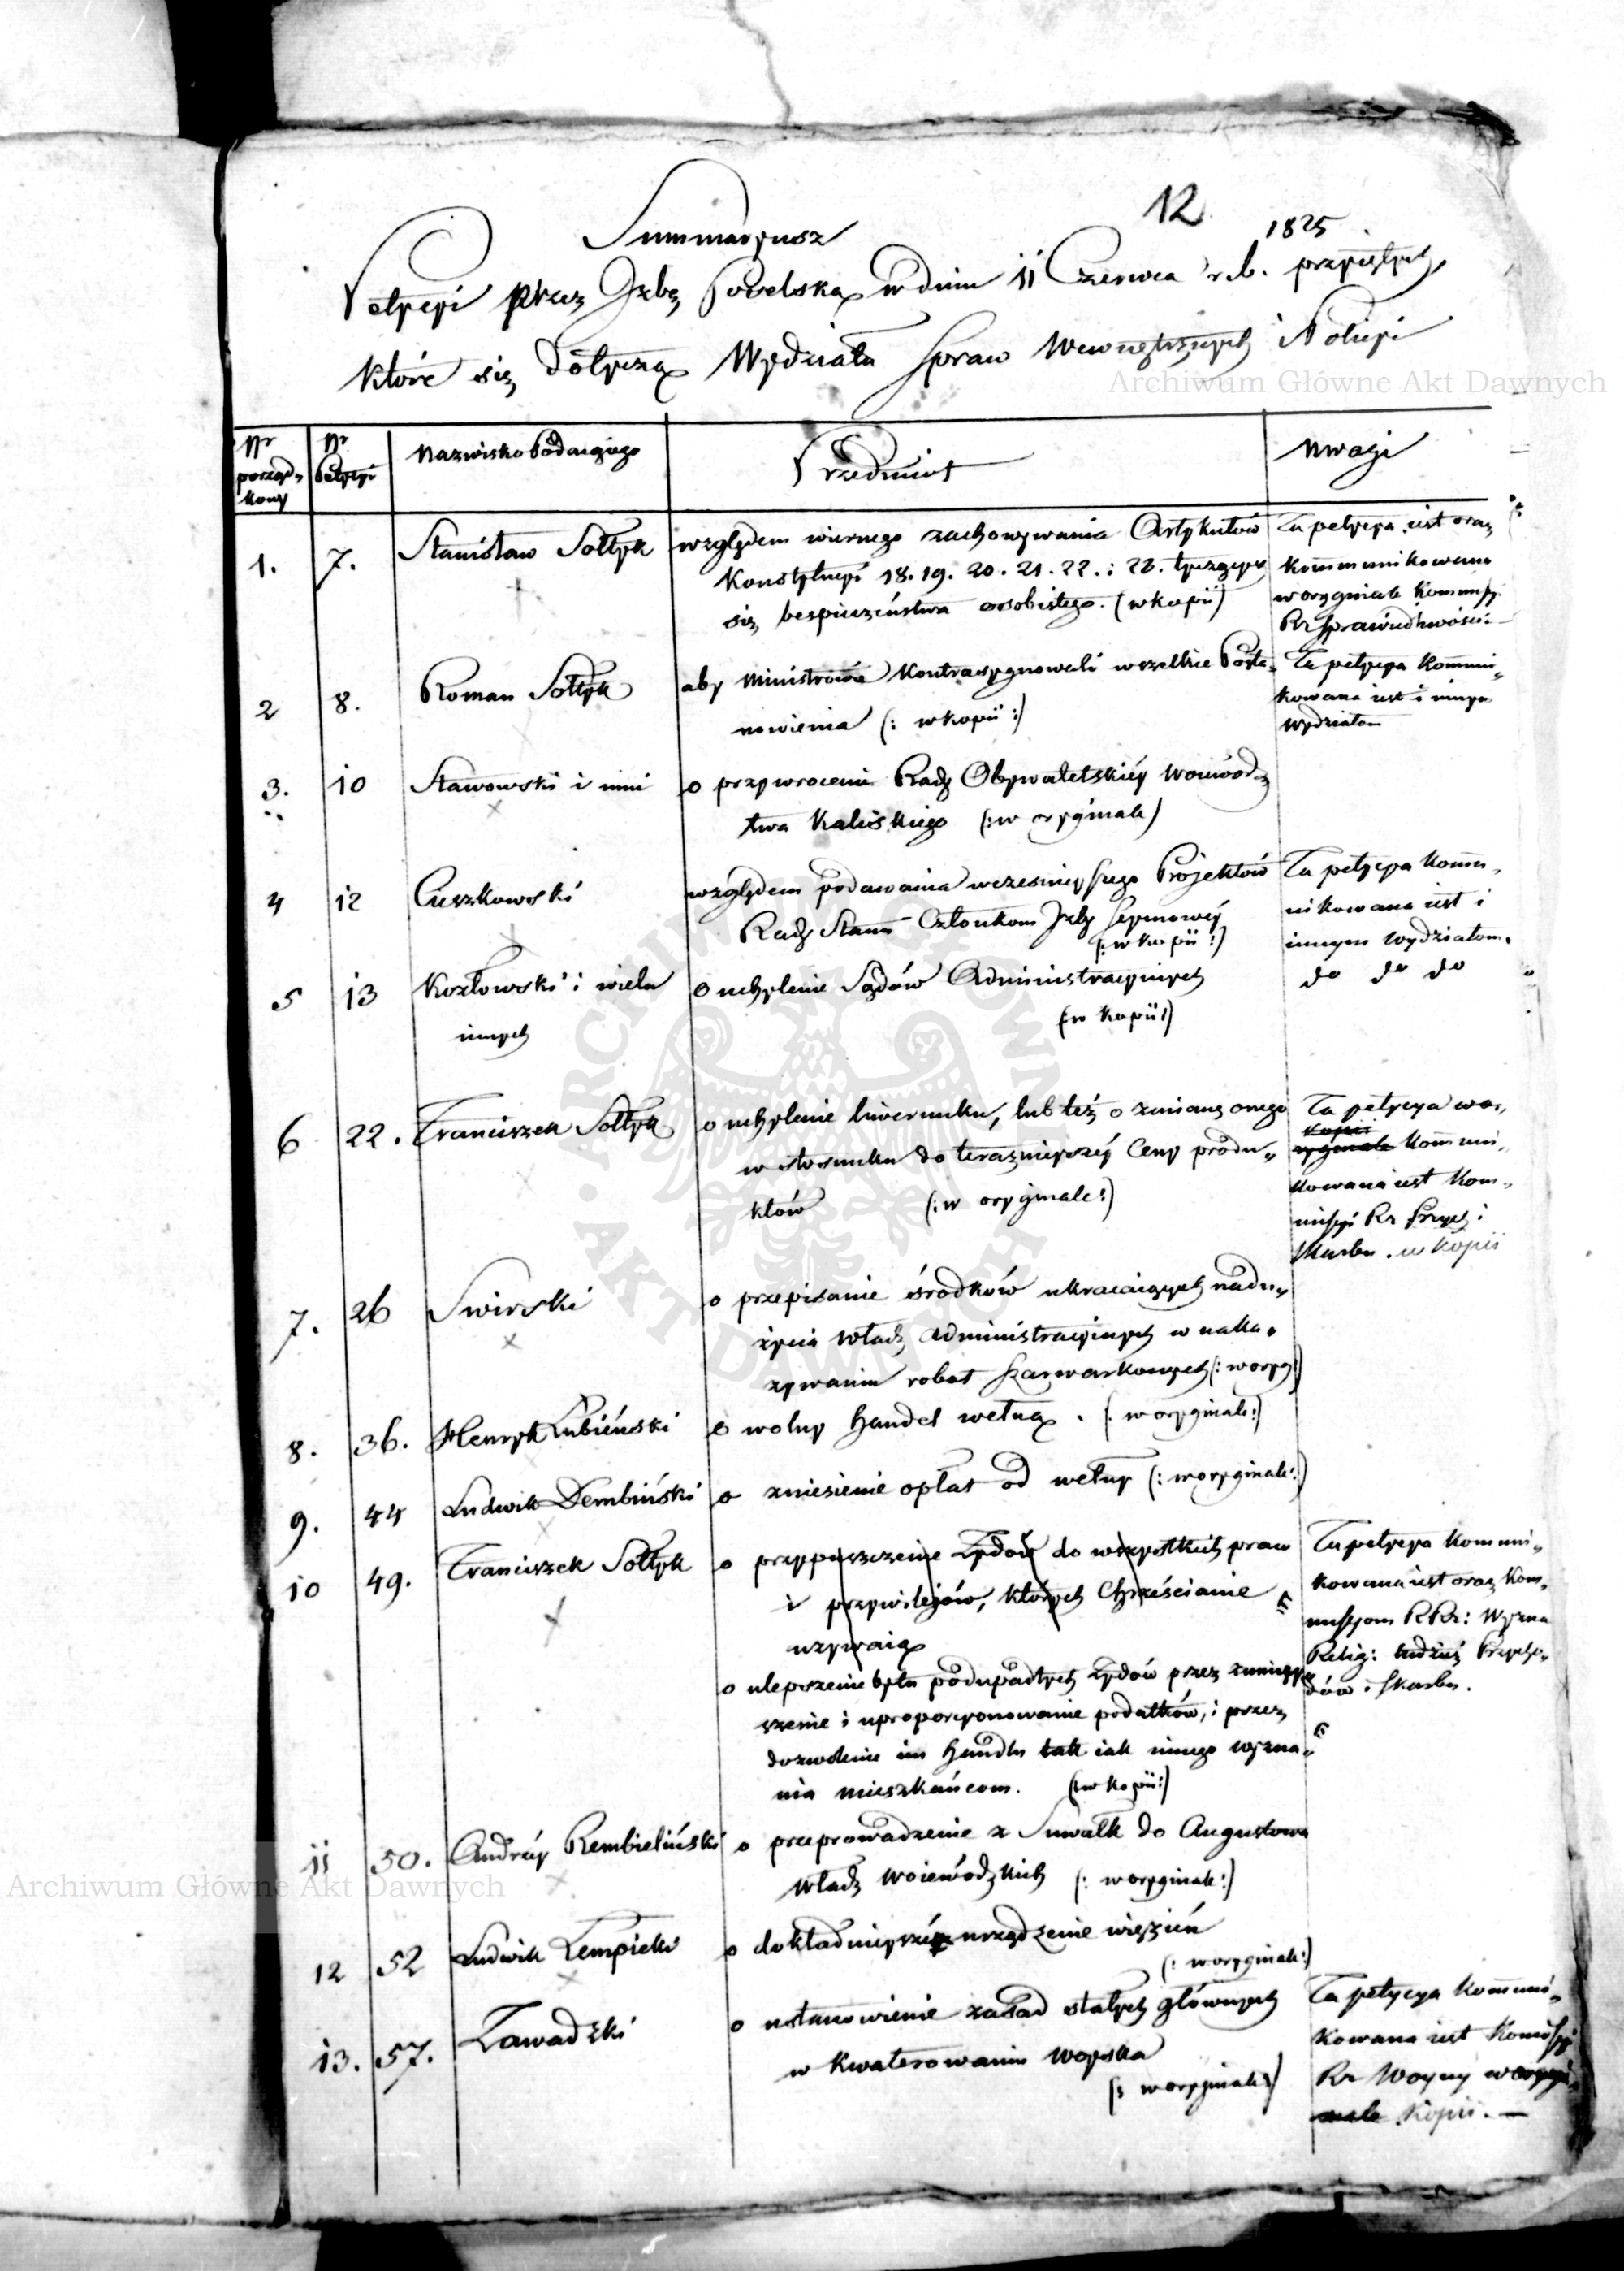 12
Summaryusz
1825
Petycyi przez Izbę Poselską w dniu 11 Czerwca r. b. przyiętych,
które się dotyczą Wydziału Spraw Wewnętrznych i Policyi
Archiwum Główne Akt Dawnych
Nr porząd= kowy
Nr Petycyi
Nazwisko Podaiącego
Przedmiot
Uwagi
1.
7.
Stanisław Sołtyk
względem wiernego zachowywania Artykułów
Konstytucyi 18. 19. 20. 21. 22. i 23. tyczących
się bespieczeństwa osobistego. (w kopii)
Ta petycya iest oraz
kommunikowana
w oryginale Kommissyi
Rz Sprawiedliwości.
2
8.
Roman Sołtyk
aby Ministrowie kontrasygnowali wszelkie Posta„
nowienia (: w kopii :)
Ta petycya kommu„
kowana iest i innym
Wydziałom
3.
10
Stawowski i inni
o przywrocenie Rady Obywatelskiéy Woiewodz„
twa Kaliskiego (: w oryginale)
4
12
Cieszkowski
względem podawania wczesnieyszego Projektów
Rady Stanu Członkom Izby Seymowéy
(: w kopii :)
Ta petycya kommu„
nikowana iest i
innym wydziałom.
5
13
Kozłowski i wielu
innych
o uchylenie Sądów Administracyinych
(: w kopii :)
do do do
6
22.
Franciszek Sołtyk
o uchylenie liwerunku, lub też o zmianę onego
w stosunku do teraznieyszéy Ceny produ„
któw (: w oryginale :)
Ta petycya w o„
kopii
ryginale kommuni„
kowana iest Kom„
missyi Rz Przych i
Skarbu. w kopii
7.
26
Swirski
o przepisanie środków ukracaiących nadu„
życia Władz Administracyinych w naka„
zywaniu robot szarwarkowych (: w oryg :)
8.
36.
Henryk Łubiéński
o wolny handel wełną. (: w oryginale :)
9.
44
Ludwik Dembiński
o zniesienie opłat od wełny (: w oryginale :)
10
49.
Franciszek Sołtyk
o przypuszczenie Żydów do wszystkich praw
i przywilejów, których Chrześcianie
uzywaią
o ulepszenie bytu podupadłych Żydów przez zmniey„
szenie i uproporcyonowanie podatków, i przez
dozwolenie im handlu tak iak innego wyzna„
nia mieszkańcom. (: w kopii :)
Ta petycya kommuni„
kowana iest oraz Kom„
missyom RRz: Wyzna
Relig: tudzież Przycho„
dów i Skarbu.
11
50.
Andrzéy Rembieliński
o przeprowadzenie z Suwałk do Augustowa
Władz Woiewódzkich (: w oryginale :)
Archiwum Główne Akt Dawnych
12
52
Ludwik Łempicki
o dokładnieysze urządzenie więzień
(: w oryginale :)
13.
57.
Zawadzki
o ustanowienie zasad stałych głównych
w kwaterowaniu woyska
(: w oryginale :)
Ta petycya kommuni„
kowana iest Kommissyi
Rz Woyny w orygi„
nale kopii. —
ARCHIWUM GŁÓWNE · AKT DAWNYCH